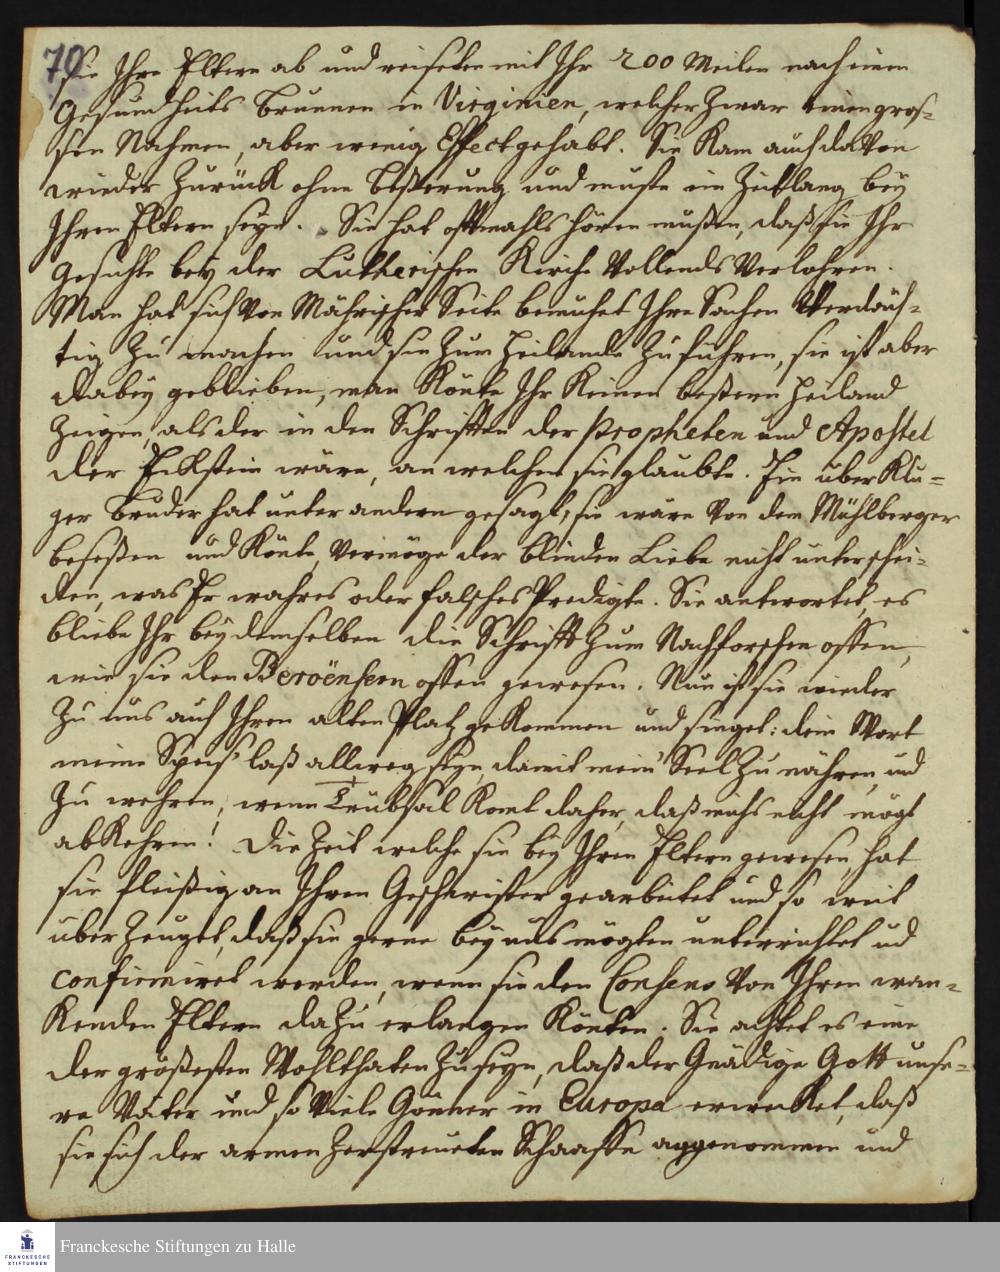 70
sie Ihre Eltern ab und reiseten mit Ihr 200 Meilen nach einem
Gesundheits Brunnen in Virginien, welcher zwar einen gros-
sen Nahmen, aber wenig Effect gehabt. Sie Kam auch davon
wieder zurück ohne Beßerung und muste ein Zeitlang bey
Ihren Eltern seyn. Sie hat oftmahls hören mußen, daß sie Ihr
Gesichte bey der Lutherischen Kirche Vollends Verlohren.
Man hat sich von Mährischer Seite bemühet Ihre Sachen Verdäch-
tig zu machen und sie zum Heilande zu führen, sie ist aber
dabey geblieben, man Könte Ihr Keinen beßern Heiland
zeigen, als der in den Schrifften der Propheten und Apostel
der Eckstein wäre, an welchen sie glaubte. Ein überklu-
ger Bruder hat unter andern gesagt, sie wäre von dem Mühlberger
beseßen und Könte vermöge der blinden Liebe nicht unterschei-
den, was Er wahres oder falsches Predigte. Sie antwortet, es
bliebe Ihr bey demselben die Schrifft zum Nachforschen offen,
wie sie den Beroënsern offen gewesen. Nun ist sie wieder
zu uns auf Ihren alten Platz gekommen und singet: dein Wort
meine Speis' laß allweg seyn, damit mein Seel zu nähren, und
zu wehren, wenn Trübsal Komt daher, daß michs nicht mögt
abkehren! Die Zeit welche sie bey Ihren Eltern gewesen, hat
sie fleißig an Ihren Geschwister gearbeitet und so weit
überzeuget, daß sie gerne bey uns mögten unterrichtet ud
confirmiret werden, wenn sie den Consens von Ihren wan-
kenden Eltern dazu erlangen Könten. Sie achtet es eine
der größesten Wohlthaten zu seyn, daß der Gnädige Gott unse-
re Väter und so Viele Gönner in Europa erwecket, daß
sie sich der armen Zerstreueten Schaaffe aggenommen und
Franckesche Stiftungen zu Halle
FRANCKESCHE
STIFTUNGEN